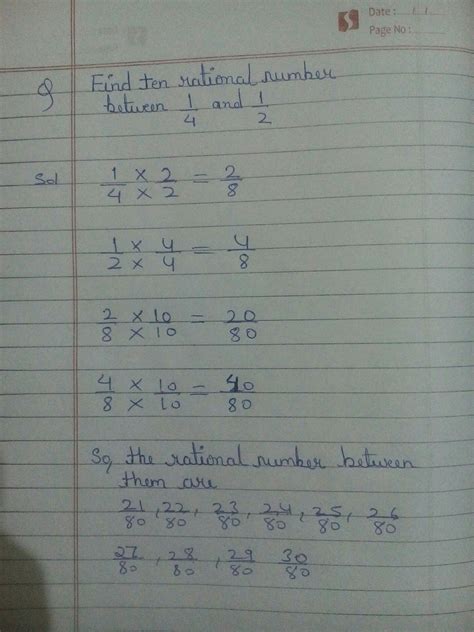 Date :
Page No :
Q Find ten rational number
between 1/4 and 1/2
Sol 1/4 × 2/2 = 2/8
1/2 × 4/4 = 4/8
2/8 × 10/10 = 20/80
4/8 × 10/10 = 40/80
So, the rational number between
them are
21/80, 22/80, 23/80, 24/80, 25/80, 26/80
27/80, 28/80, 29/80 30/80